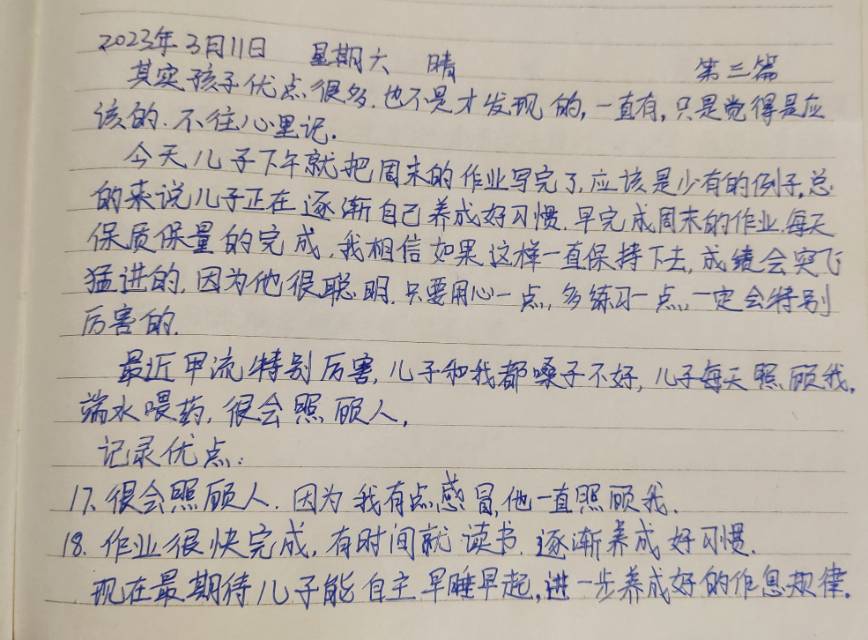 2023年3月11日 星期六 晴 第三篇
其实孩子优点很多.也不是才发现的,一直有,只是觉得是应
该的.不往心里记.
今天儿子下午就把周末的作业写完了,应该是少有的例子,总
的来说儿子正在逐渐自己养成好习惯.早完成周末的作业.每天
保质保量的完成,我相信如果这样一直保持下去,成绩会突飞
猛进的,因为他很聪明.只要用心一点,多练习一点,一定会特别
厉害的.
最近甲流特别厉害,儿子和我都嗓子不好,儿子每天照顾我,
端水喂药,很会照顾人,
记录优点:
17.很会照顾人.因为我有点感冒,他一直照顾我.
18.作业很快完成,有时间就读书.逐渐养成好习惯.
现在最期待儿子能自主早睡早起,进一步养成好的作息规律.